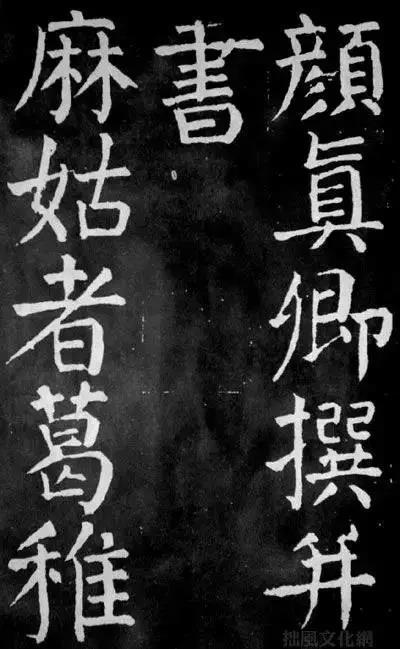 顔真卿撰并
書
麻姑者葛稚
拙風文化網